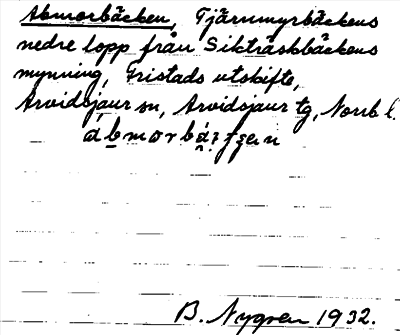 Abmorbäcken, Tjärnmyrbäckens
nedre lopp från Sikträskbäckens
mynning, Fristads utskifte,
Arvidsjaur sn, Arvidsjaur tg, Norrb l.
B. Nygren 1932.